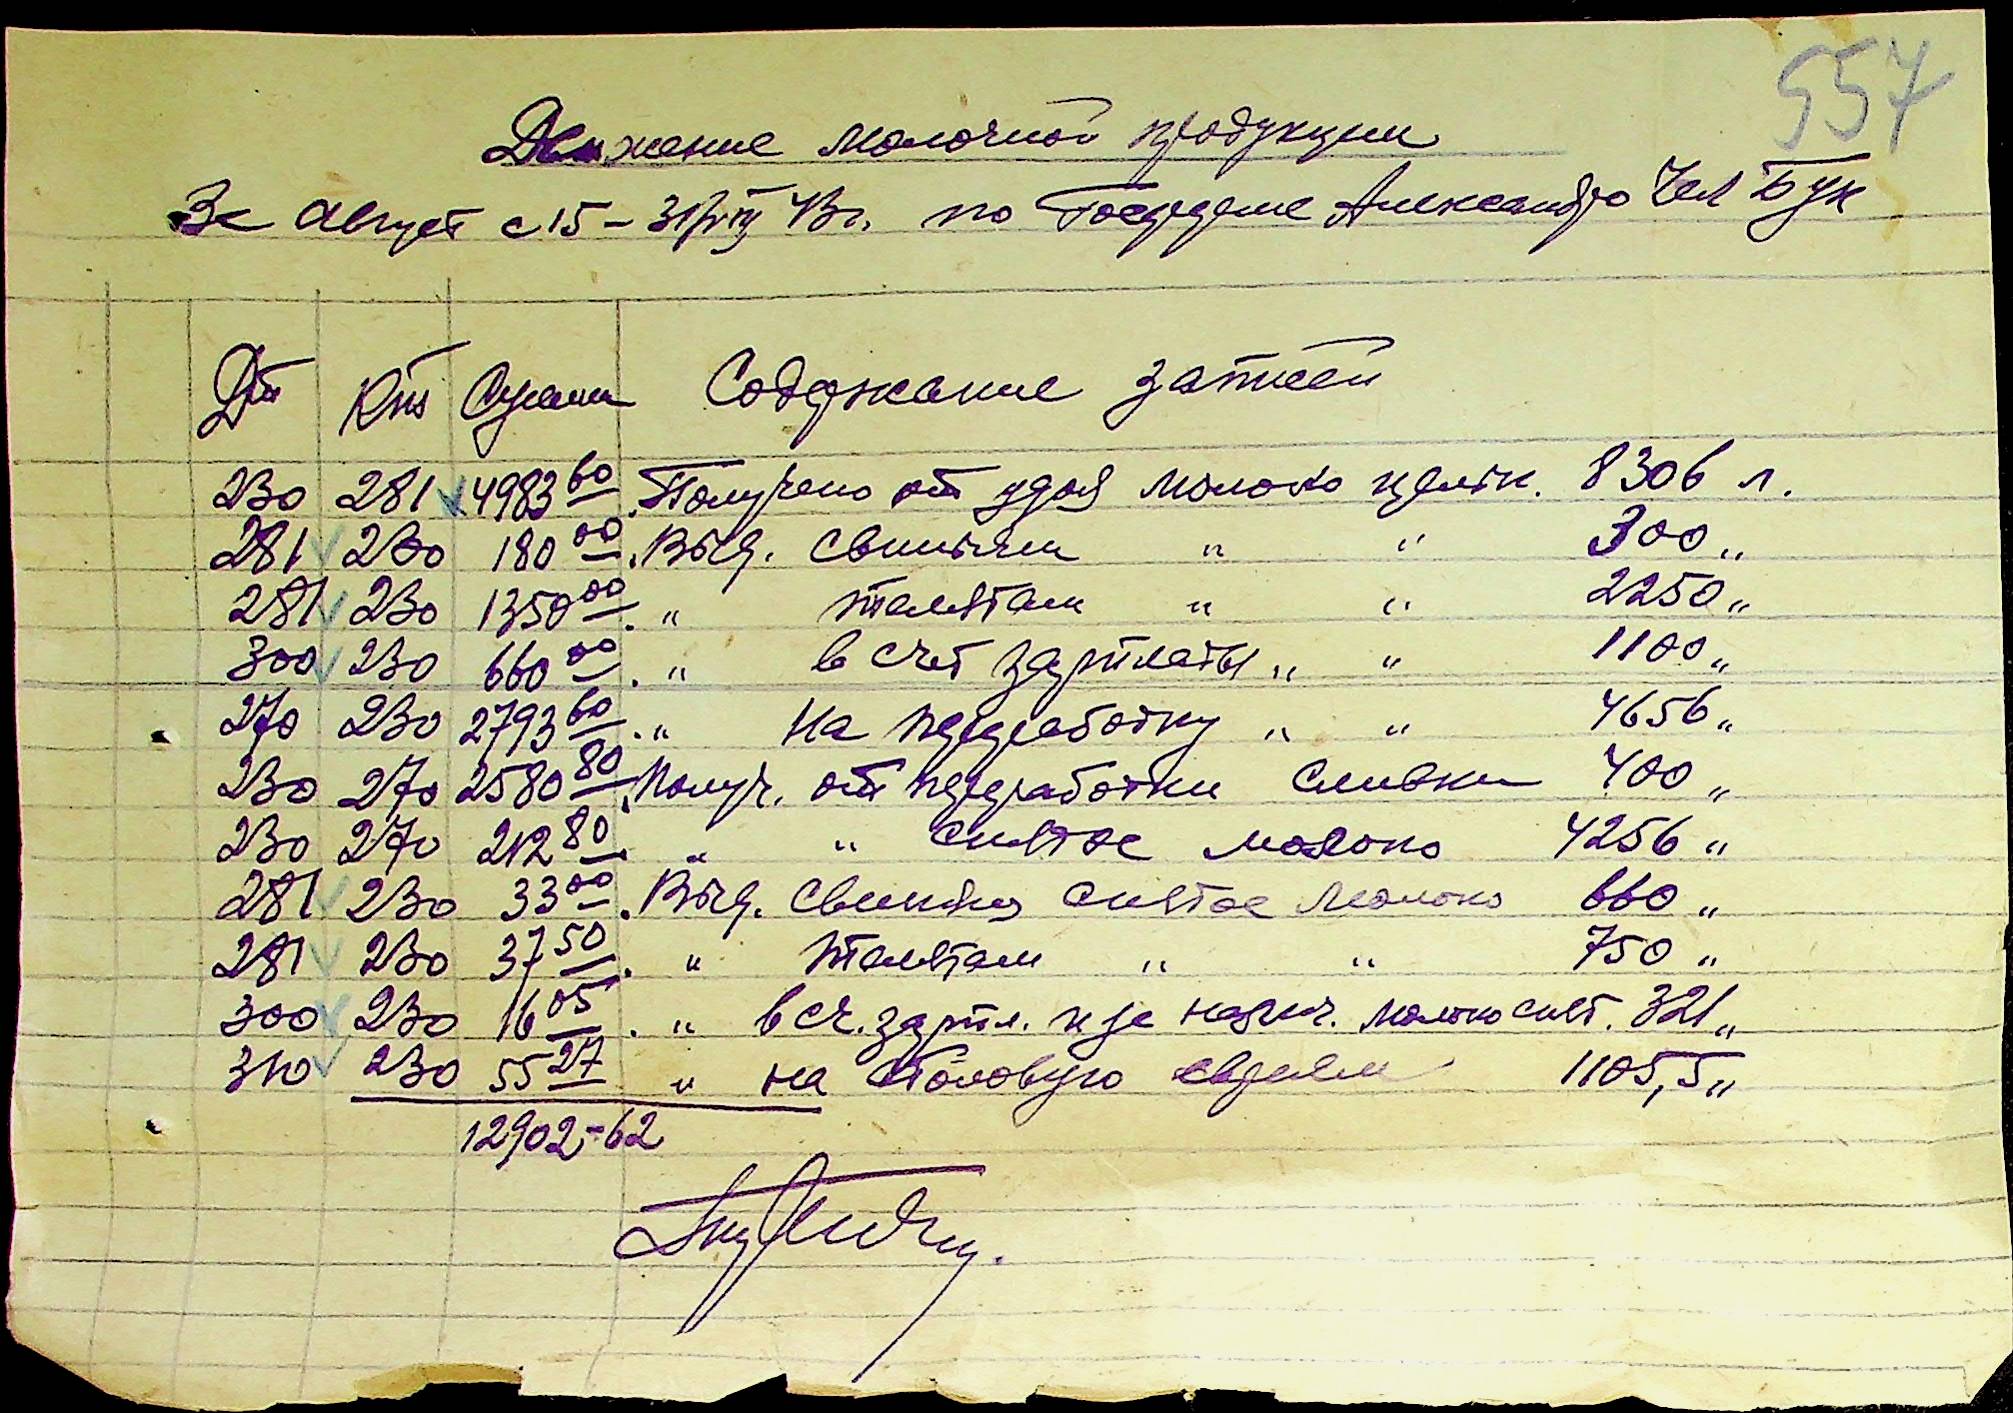 557
Движение молочной продукции
За август с 15 – 31/VIII 43 г. по Госферме Александро Чел Бук
Дт Кт Сумма Содержание записей
230 281 4983 60 Получено от удоя молоко цельн. 8306 л.
281 230 180 00 Выд. свиньям " " 300 "
281 230 1350 00 " телятам " " 2250 "
300 230 660 00 " в счет зарплаты " " 1100 "
270 230 2793 60 " на переработку " " 4656 "
230 270 2580 80 Получ. от переработки сливки 400 "
230 270 212 80 " " снятое молоко 4256 "
281 230 33 00 Выд. свиньям снятое молоко 660 "
281 230 37 50 " телятам " " 750 "
300 230 16 05 " в сч. зарпл. и за налич. молоко снят. 321 "
310 230 55 27 " на столовую евреям 1105,5 "
12902-62